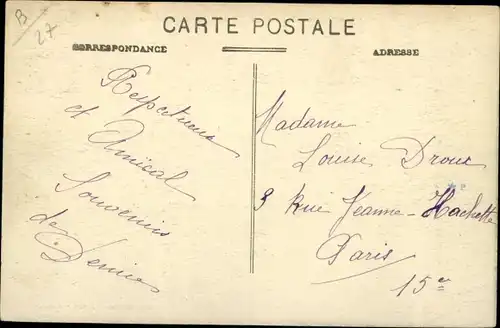 B
27
CARTE POSTALE
CORRESPONDANCE
ADRESSE
Respectueux
et Amical
Souvenirs
de Denise
Madame
Louise Droux
3 Rue Jeanne-Hachette
Paris
15e